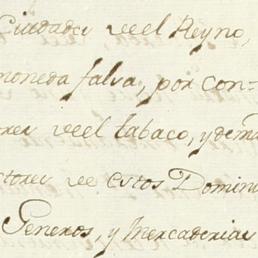 Ciudades del Reyno,
moneda falsa, por con=
del tabaco, y dem
ctores de estos Domin
Generos, y Mercaderias